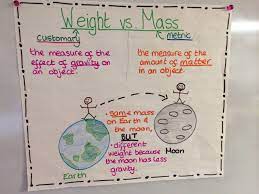 Weight vs. Mass
Customary
metric
the measure of the
effect of gravity on
an object.
the measure of the
amount of matter
in an object.
• Same mass
on Earth &
the moon,
BUT
• different
weight because
the moon has less
gravity.
Earth
Moon